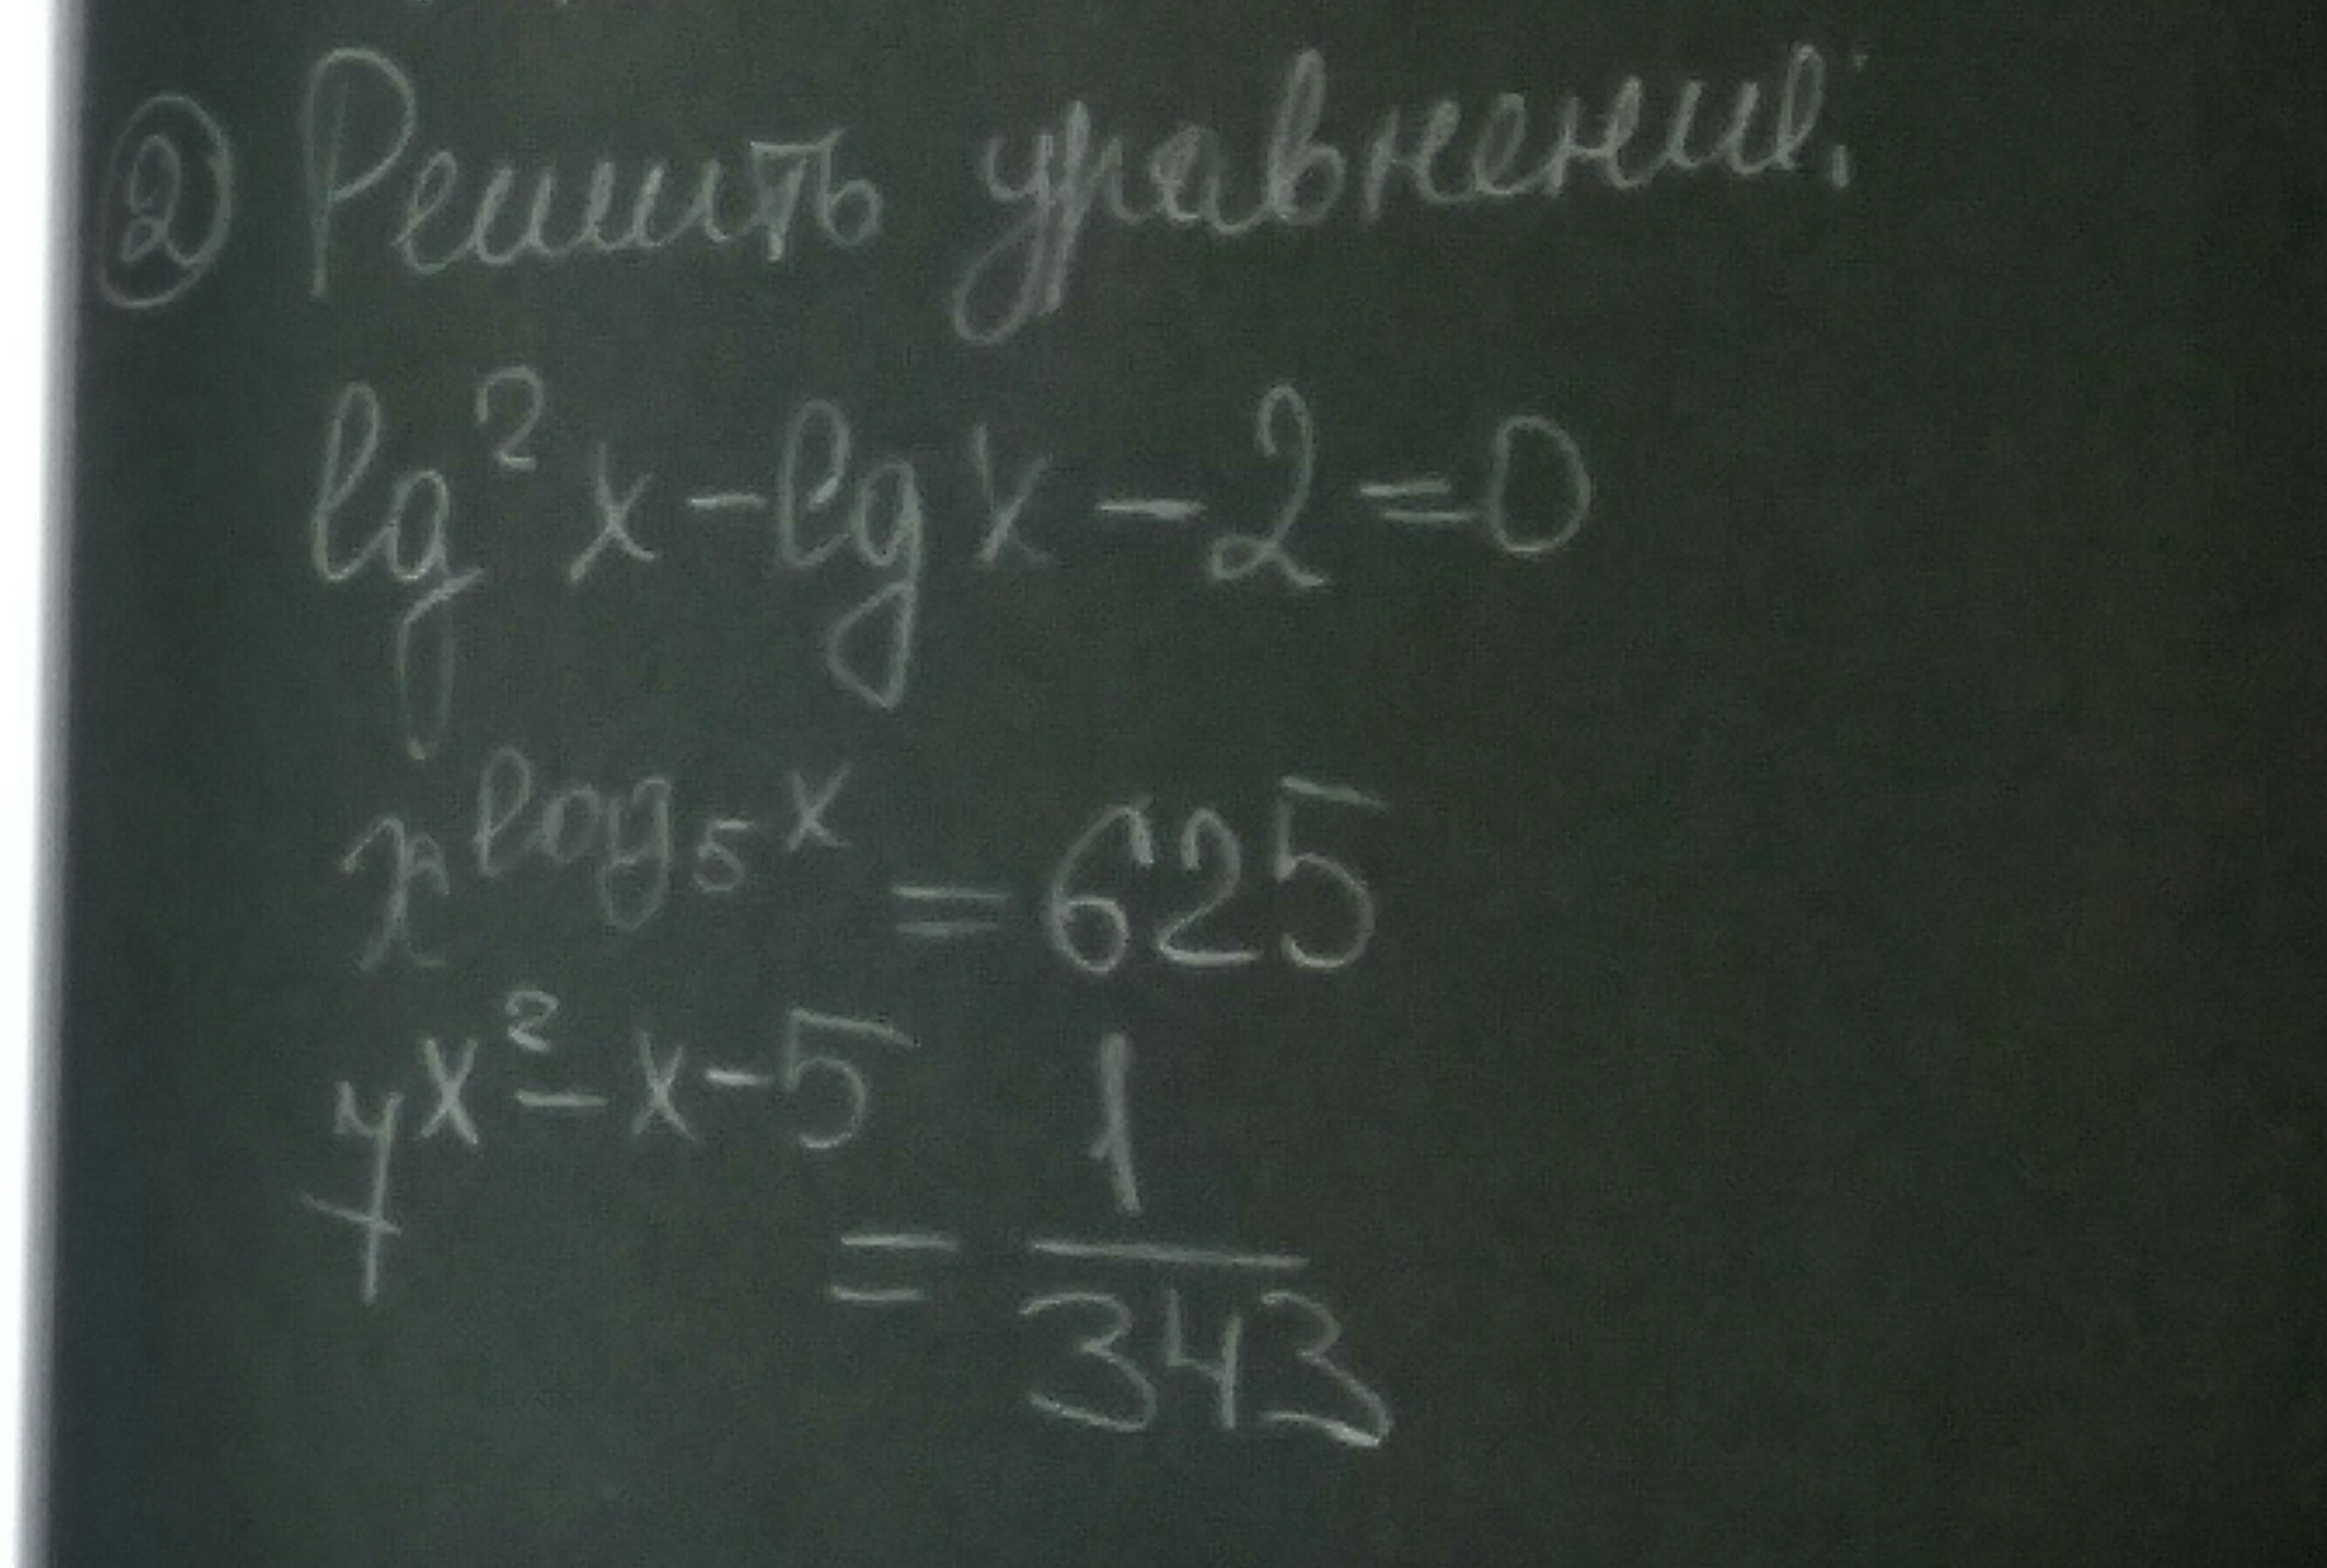 ② Решить уравнение:
lg²x - lg x - 2 = 0
x^(log₅x) = 625
7^(x²-x-5) = 1/343